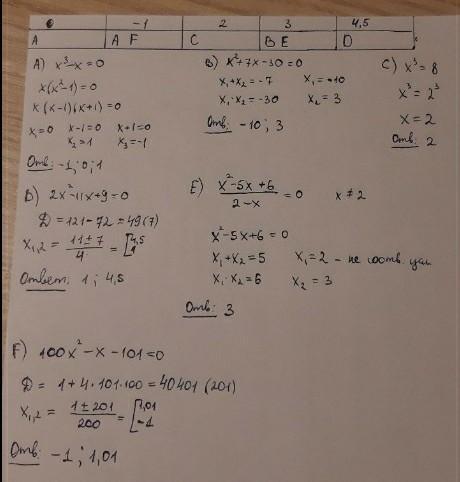 0 -1 2 3 4,5
A A F C B E D
A) x³-x=0
x(x²-1)=0
x(x-1)(x+1)=0
x₁=0 x-1=0 x+1=0
x₂=1 x₃=-1
Отв: -1; 0; 1
B) x²+7x-30=0
x₁+x₂=-7 x₁=-10
x₁·x₂=-30 x₂=3
Отв: -10; 3
C) x³=8
x³=2³
x=2
Отв: 2
D) 2x²-11x+9=0
D=121-72=49(7)
x₁,₂ = (11±7)/4 = [4,5 1
Ответ: 1; 4,5
E) (x²-5x+6)/(2-x) = 0 x≠2
x²-5x+6=0
x₁+x₂=5 x₁=2 - не соотв. усл
x₁·x₂=6 x₂=3
Отв: 3
F) 100x²-x-101=0
D = 1+4·101·100=40401(201)
x₁,₂ = (1±201)/200 = [1,01 -1
Отв: -1; 1,01